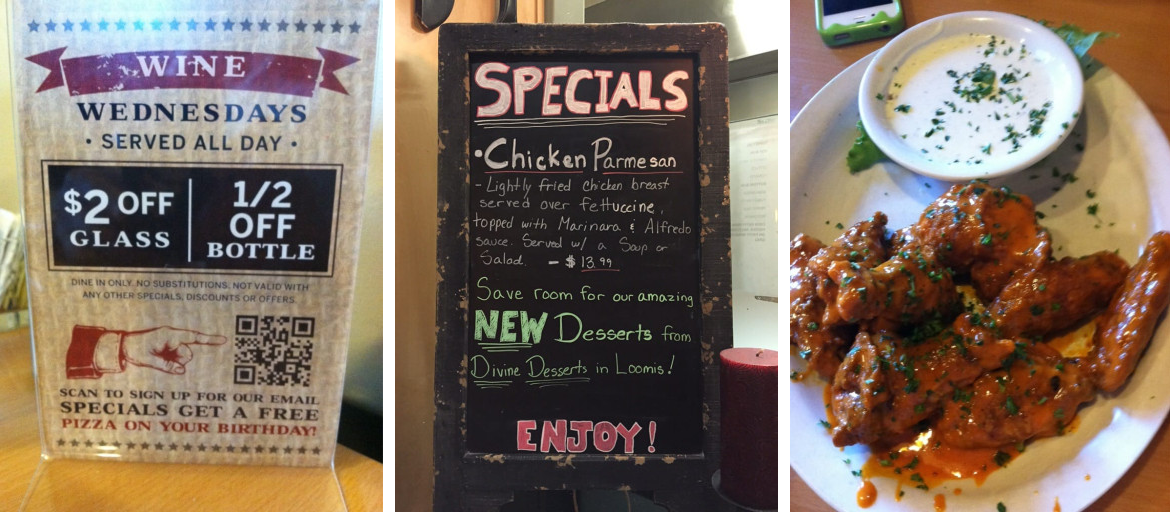 WINE
WEDNESDAYS
• SERVED ALL DAY •
$2 OFF
GLASS
1/2
OFF
BOTTLE
DINE IN ONLY. NO SUBSTITUTIONS. NOT VALID WITH
ANY OTHER SPECIALS, DISCOUNTS OR OFFERS.
SCAN TO SIGN UP FOR OUR EMAIL
SPECIALS GET A FREE
PIZZA ON YOUR BIRTHDAY!
SPECIALS
• Chicken Parmesan
- Lightly fried chicken breast
served over fettuccine,
topped with Marinara & Alfredo
sauce. Served w/ a Soup or
Salad. - $13.99
Save room for our amazing
NEW Desserts from
Divine Desserts in Loomis!
ENJOY!